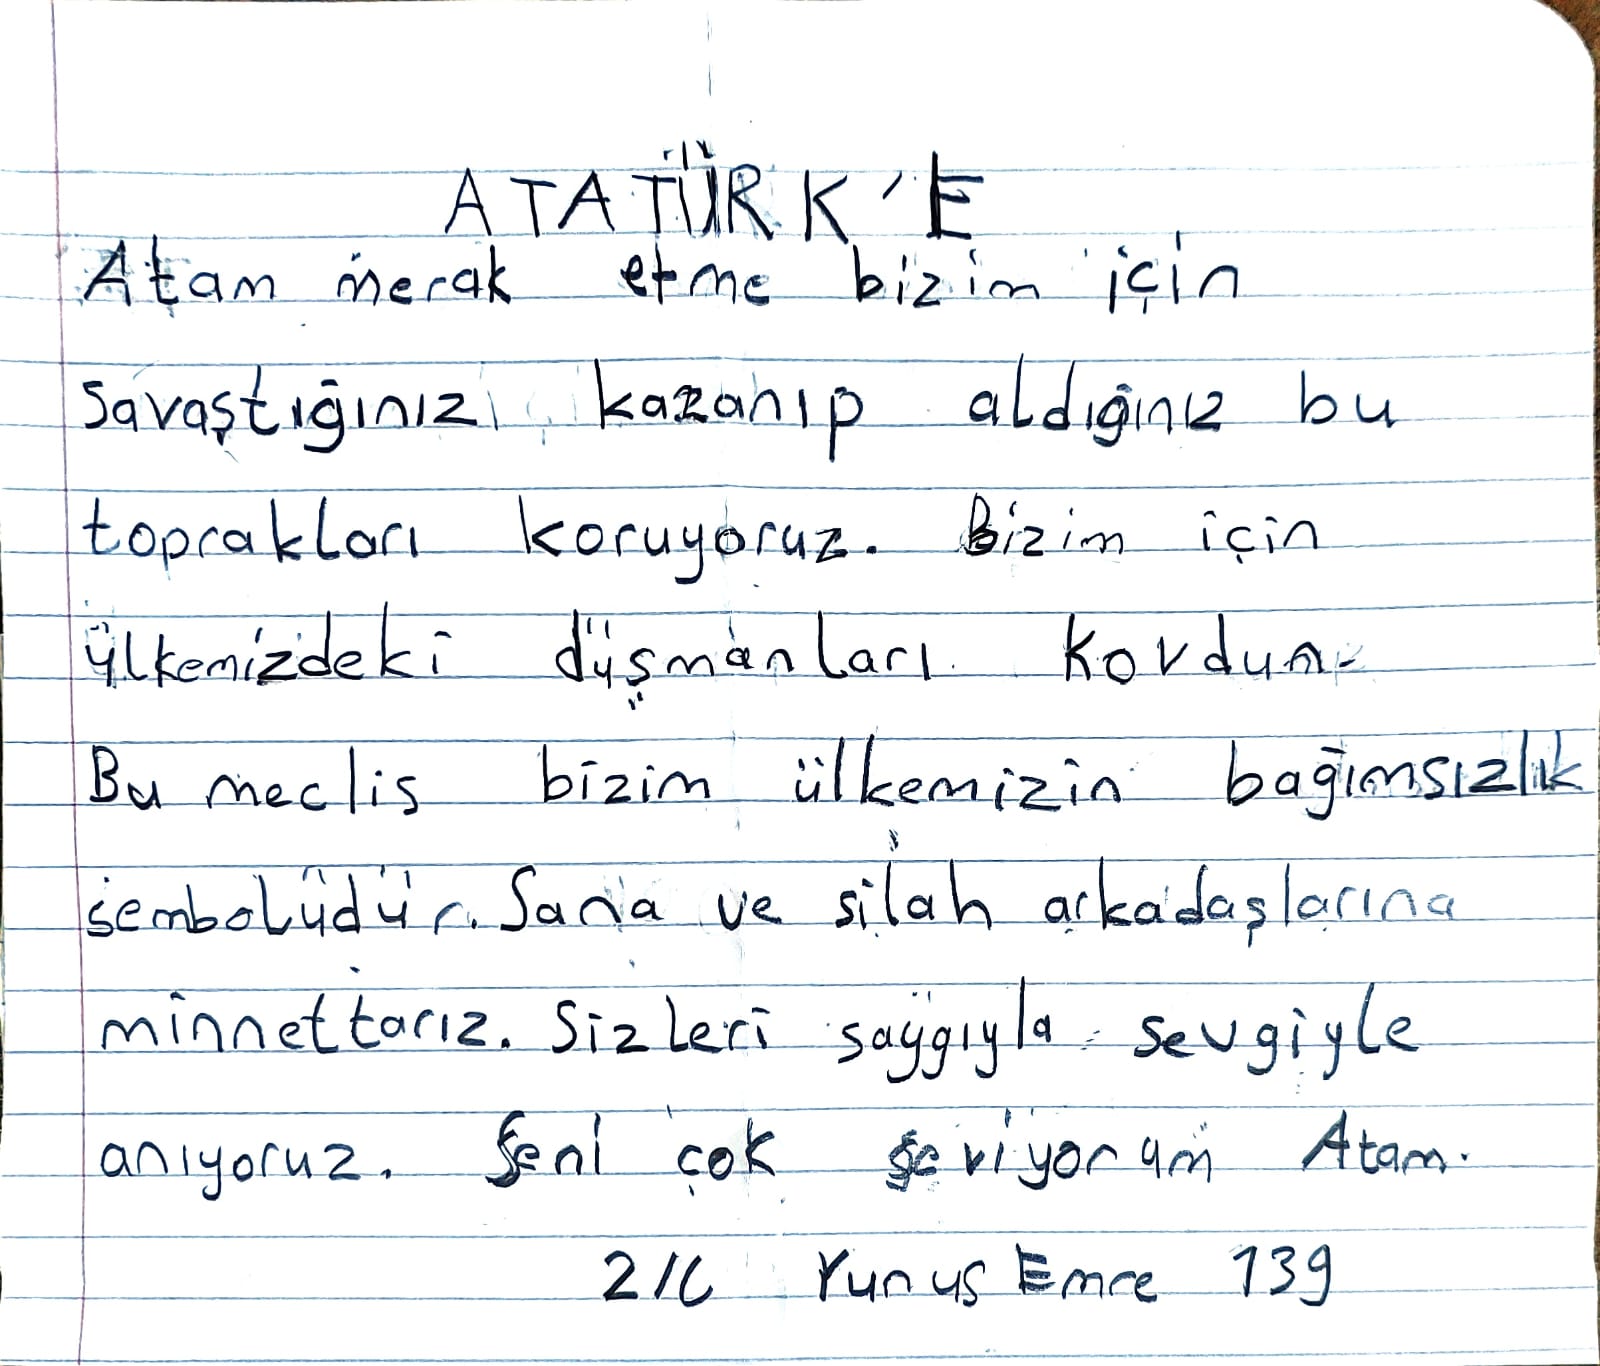 ATATÜRK'E
Atam merak etme bizim için
savaştığınız, kazanıp aldığınız bu
toprakları koruyoruz. Bizim için
ülkemizdeki düşmanları kovdun.
Bu meclis bizim ülkemizin bağımsızlık
sembolüdür. Sana ve silah arkadaşlarına
minnettarız. Sizleri saygıyla sevgiyle
anıyoruz. Seni çok seviyorum Atam.
2/C Yunus Emre 139